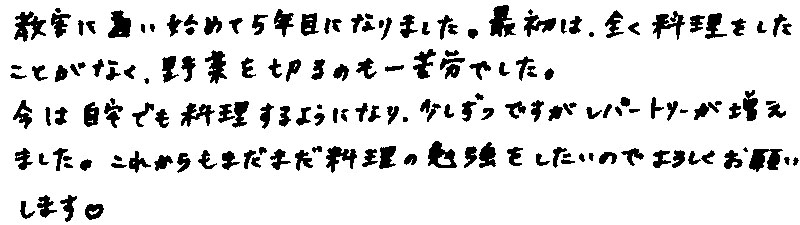 教室に通い始めて5年目になりました。最初は、全く料理をした
ことがなく、野菜を切るのも一苦労でした。
今は自宅でも料理するようになり、少しずつですがレパートリーが増え
ました。これからもまだまだ料理の勉強をしたいのでよろしくお願い
します♡